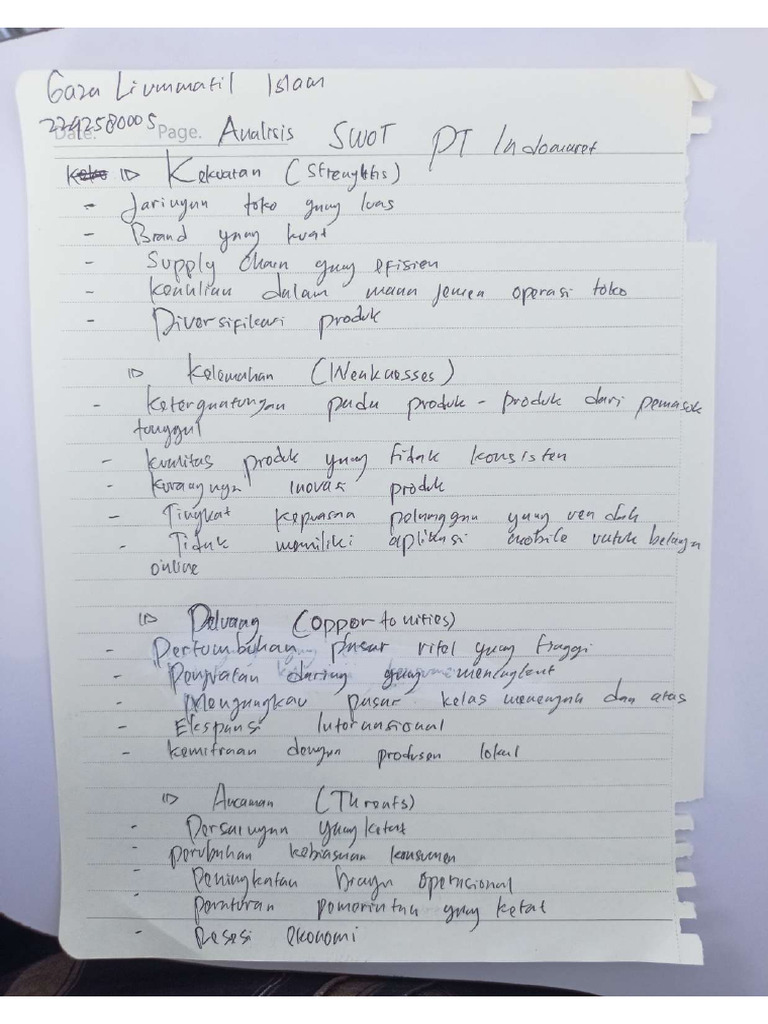 Gaza Livmmatil Islam
2242580005
Date. Page. Analisis SWOT PT Indomaret
Kekuatan (Strengths)
- Jaringan toko yang luas
- Brand yang kuat
- Supply Chain yang efisien
- Keahlian dalam manajemen operasi toko
- Diversifikasi produk
Kelemahan (Weaknesses)
- Ketergantungan pada produk - produk dari pemasok
tunggal
- Kualitas produk yang tidak konsisten
- Kurangnya inovasi produk
- Tingkat kepuasan pelanggan yang rendah
- Tidak memiliki aplikasi mobile untuk belanja
online
Peluang (Opportonities)
- Pertumbuhan pasar ritel yang tinggi
- Penjualan daring yang meningkat
- Menjangkau pasar kelas menengah dan atas
- Ekspansi Internasional
- Kemitraan dengan produsen lokal
Ancaman (Threats)
- Persaingan yang ketat
- perubahan kebiasaan konsumen
- Peningkatan biaya operasional
- Peraturan pemerintah yang ketat
- Resesi ekonomi